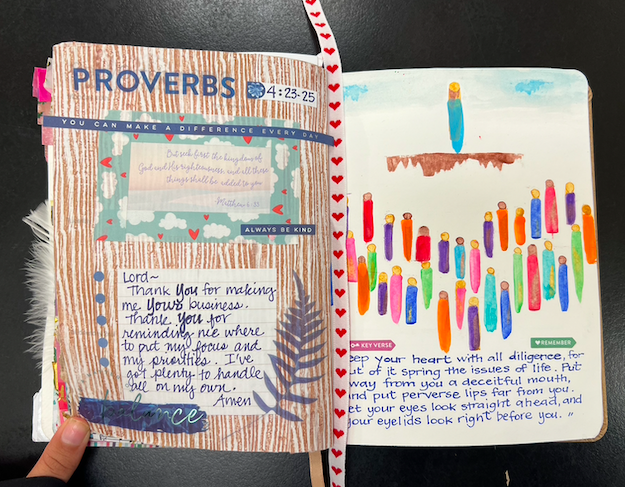 PROVERBS 4:23-25
YOU CAN MAKE A DIFFERENCE EVERY DAY
But seek first the kingdom of
God and His righteousness, and all these
things shall be added to you
Matthew 6:33
ALWAYS BE KIND
Lord~
Thank You for making
me Yours business.
Thank You for
reminding me where
to put my focus and
my priorities. I've
got plenty to handle
all on my own.
Amen
balance
KEY VERSE
REMEMBER
eep your heart with all diligence, for
ut of it spring the issues of life. Put
way from you a deceitful mouth,
nd put perverse lips far from you.
et your eyes look straight ahead, and
your eyelids look right before you."